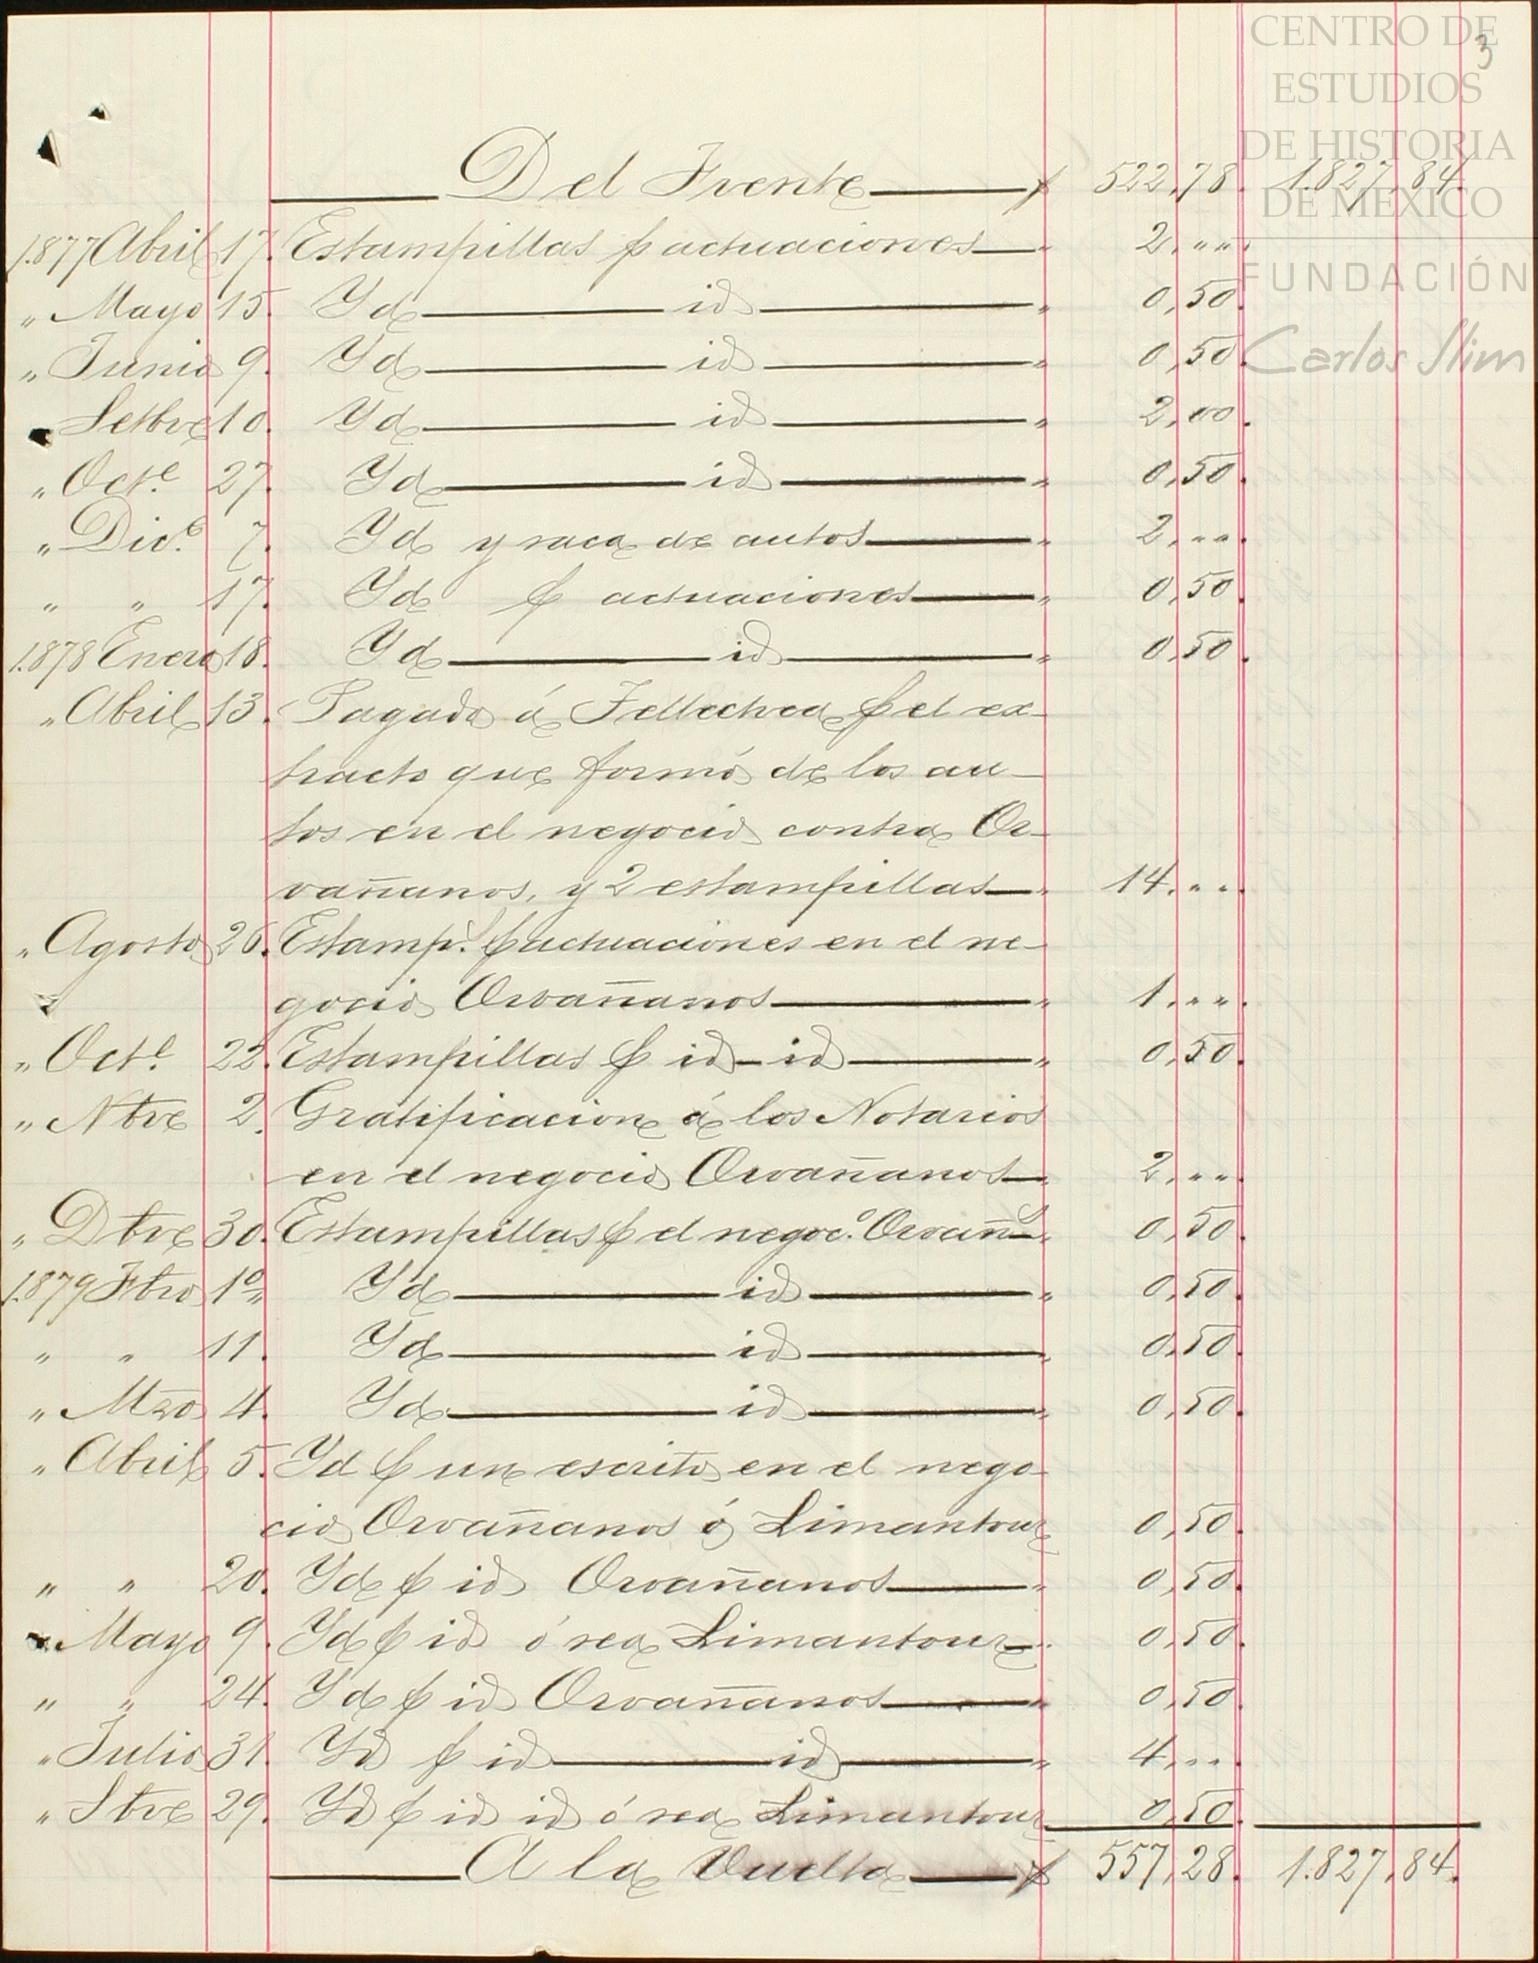 CENTRO DE
ESTUDIOS
DE HISTORIA
DE MÉXICO
FUNDACIÓN
Carlos Slim
3
Del Frente $ 522,78. 1.827,84
1.877 Abril 17. Estampillas p actuaciones " 2,"".
" Mayo 15. Yd id " 0,50.
" Junio 9. Yd id " 0,50
" Setbre 10. Yd id " 2,00.
" Oct.e 27. Yd id " 0,50.
" Dic.e 7. Yd y saca de autos " 2,"".
" " 17. Yd p actuaciones " 0,50.
1.878 Enero 18. Yd id " 0,50.
" Abril 13. Pagado á Tellechea p el ex-
tracto que formó de los au-
tos en el negocio contra Or-
vañanos, y 2 estampillas " 14,"".
" Agosto 26. Estamp.s p actuaciones en el ne-
gocio Orvañanos " 1,"".
" Oct.e 22. Estampillas p id id " 0,50.
" Nbre 2. Gratificacion á los Notarios
en el negocio Orvañanos " 2,"".
" Dbre 30. Estampillas p el negoc.o Orvañ.s " 0,50.
1.879 Fbro 1º " Yd id " 0,50.
" " 11. Yd id " 0,50.
" Mzo 4. Yd id " 0,50.
" Abril 5. Yd p un escrito en el nego-
cio Orvañanos ó Limantour 0,50.
" " 20. Yd p id Orvañanos " 0,50.
" Mayo 9. Yd p id ó sea Limantour 0,50.
" " 24. Yd p id Orvañanos " 0,50.
" Julio 31. Yd p id id " 4,"".
" Sbre 29. Yd p id id ó sea Limantour 0,50.
A la Vuelta $ 557,28. 1.827,84.